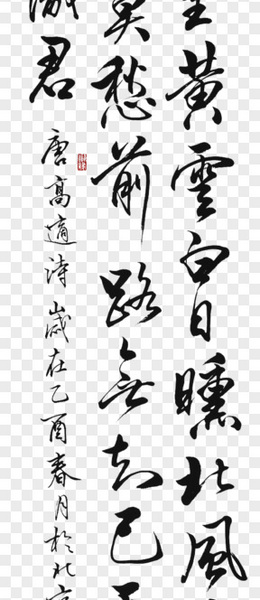 里黄雲白日曛北風
莫愁前路無知己
君
唐高適詩歲在乙酉春月於北京